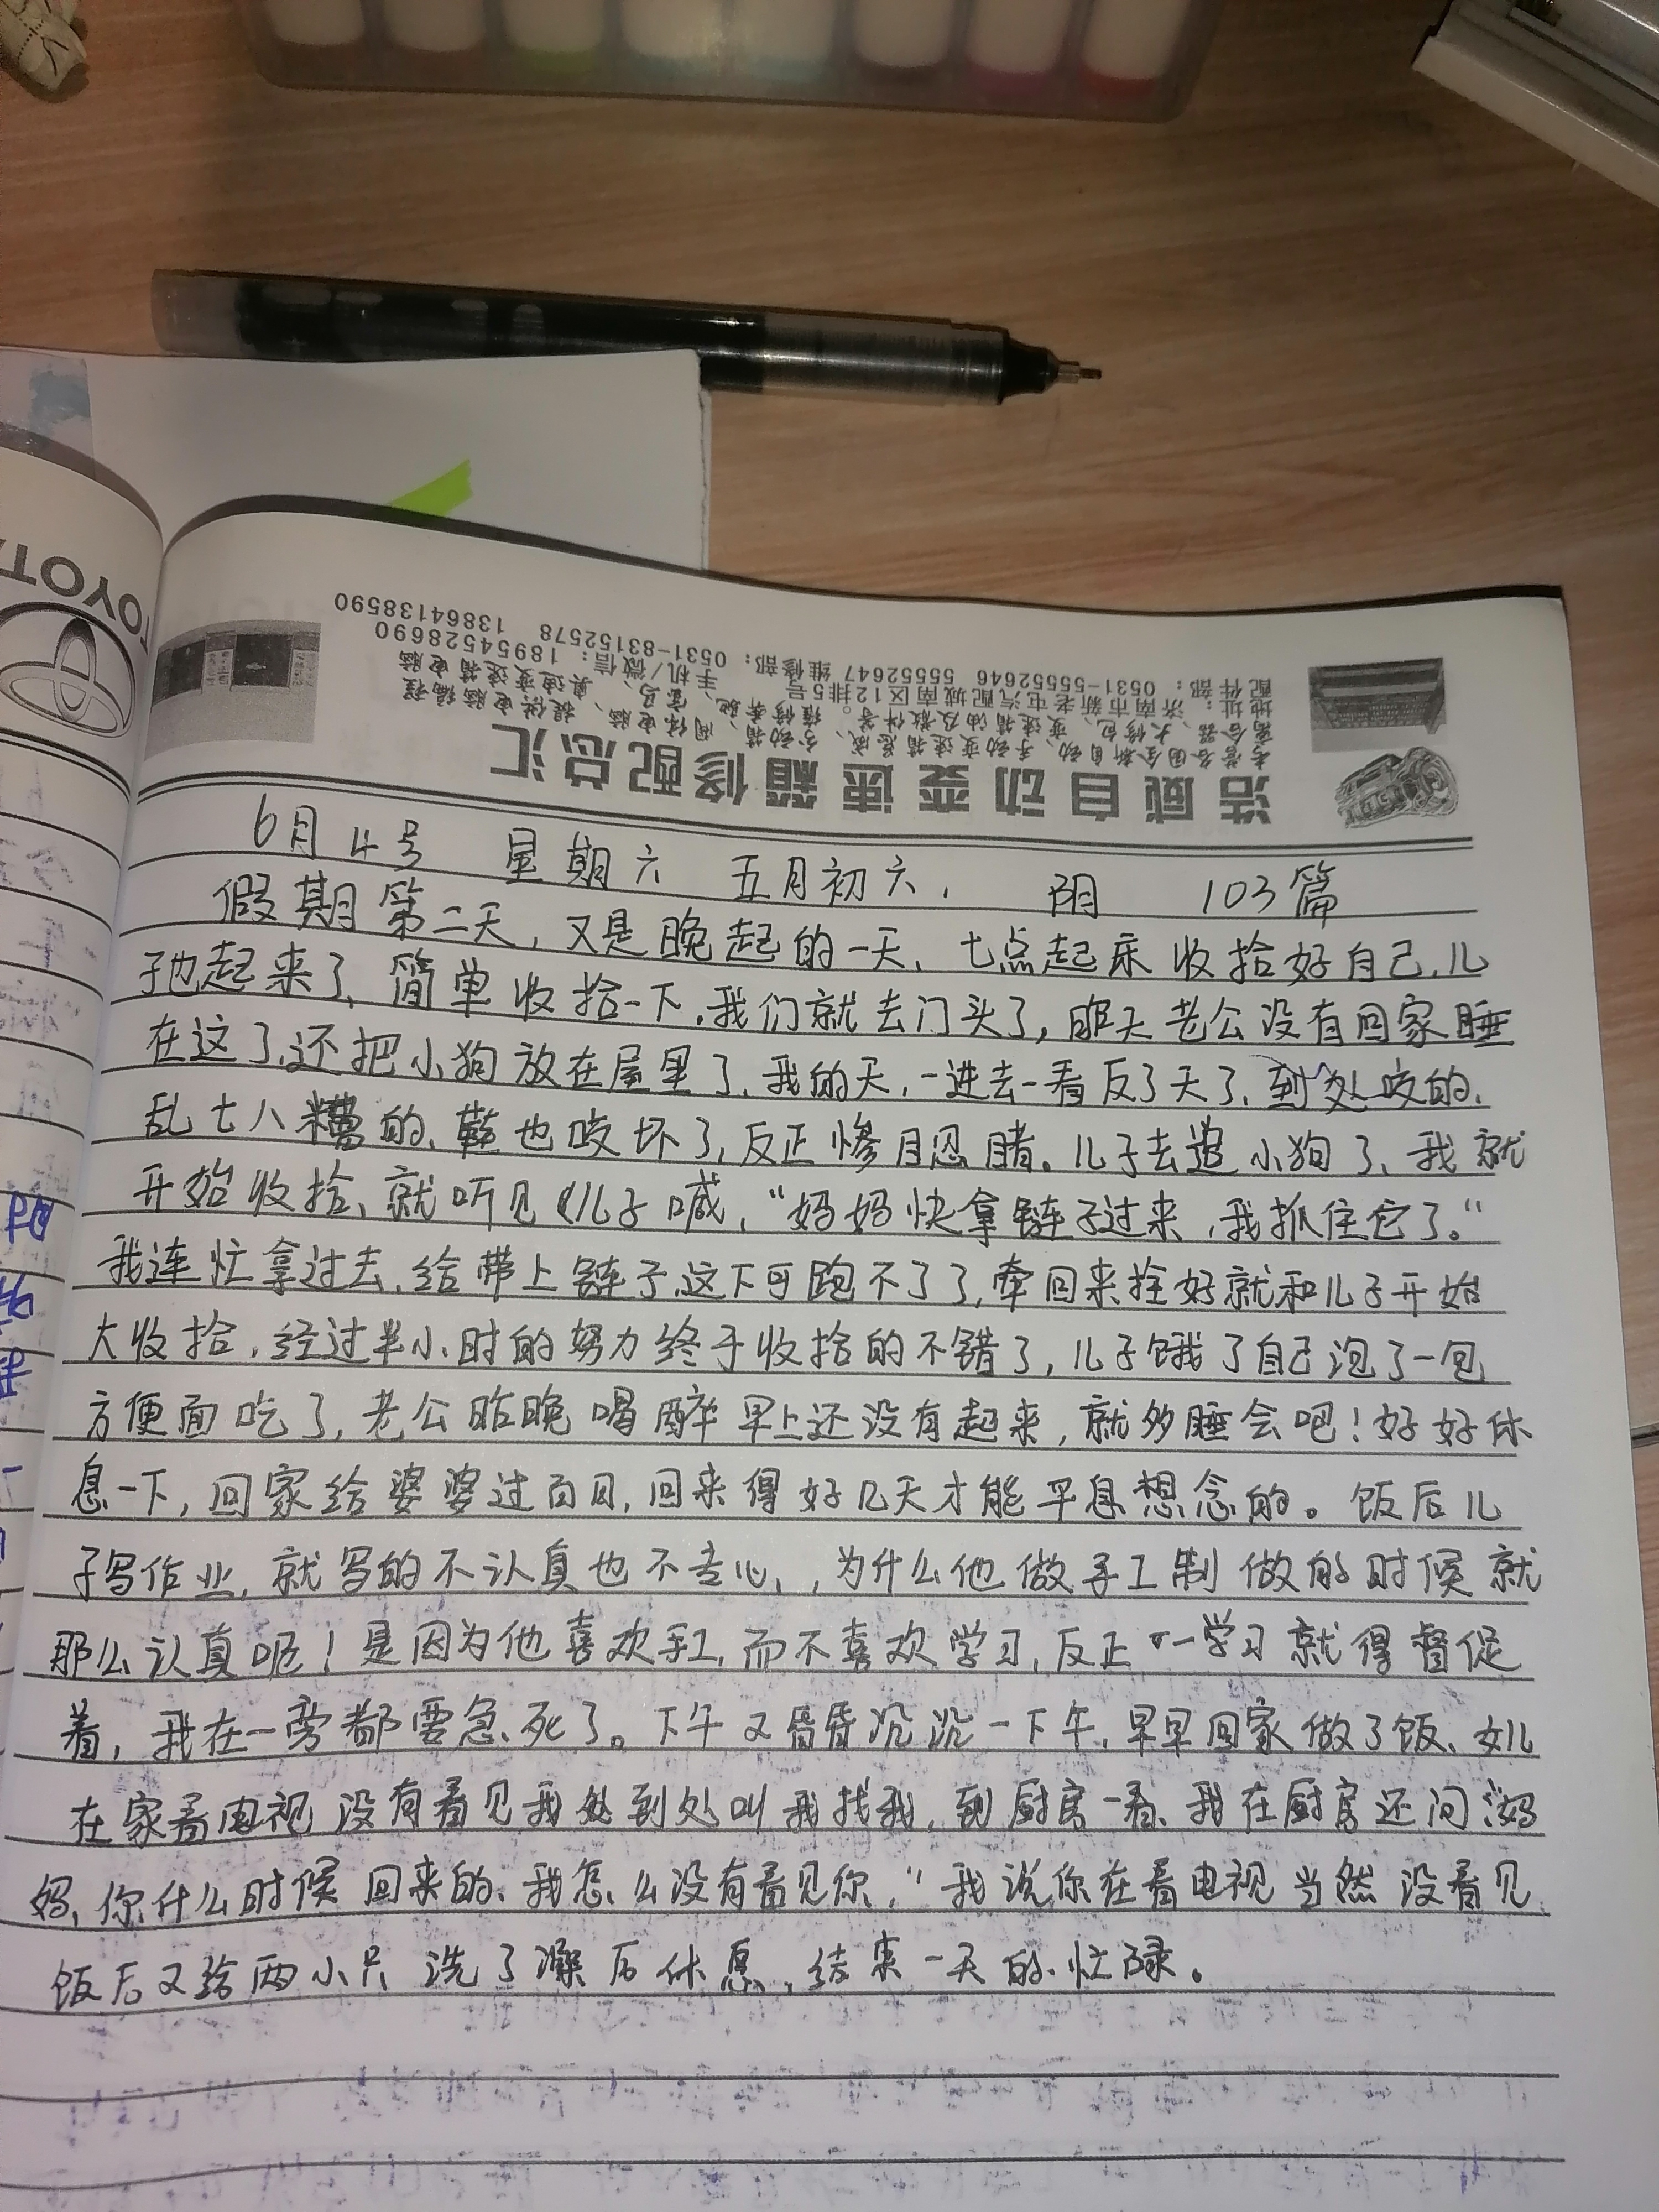 TOYOTA
浩威自动变速箱修配总汇
地址：济南市新老屯汽配城南区12排5号
配件部：0531-55552646 55552647 维修部：0531-83152578 13864138590
手机/微信：18954528690
6月4号 星期六 五月初六, 阴 103篇
假期第二天,又是晚起的一天、七点起床收拾好自己,儿
子也起来了、简单收拾一下,我们就去门头了,昨天老公没有回家睡
在这了,还把小狗放在屋里了、我的天,一进去一看反了天了、到处咬的、
乱七八糟的、鞋也咬坏了,反正惨目忍睹。儿子去追小狗了、我就
开始收拾、就听见儿子喊,“妈妈快拿链子过来,我抓住它了。”
我连忙拿过去,给带上链子,这下可跑不了了,牵回来拴好就和儿子开始
大收拾,经过半小时的努力终于收拾的不错了,儿子饿了自己泡了一包
方便面吃了,老公昨晚喝醉早上还没有起来,就多睡会吧!好好休
息一下,回家给婆婆过百日,回来得好几天才能平息想念的。饭后儿
子写作业,就写的不认真也不走心,,为什么他做手工制做的时候就
那么认真呢!是因为他喜欢手工,而不喜欢学习,反正一学习就得督促
着,我在一旁都要急死了。下午又昏昏沉沉一下午,早早回家做了饭、女儿
在家看电视没有看见我处到处叫我找我,到厨房一看、我在厨房还问“妈
妈,你什么时候回来的、我怎么没有看见你,”我说你在看电视当然没看见
饭后又给两小只洗了澡后休息,结束一天的忙碌。